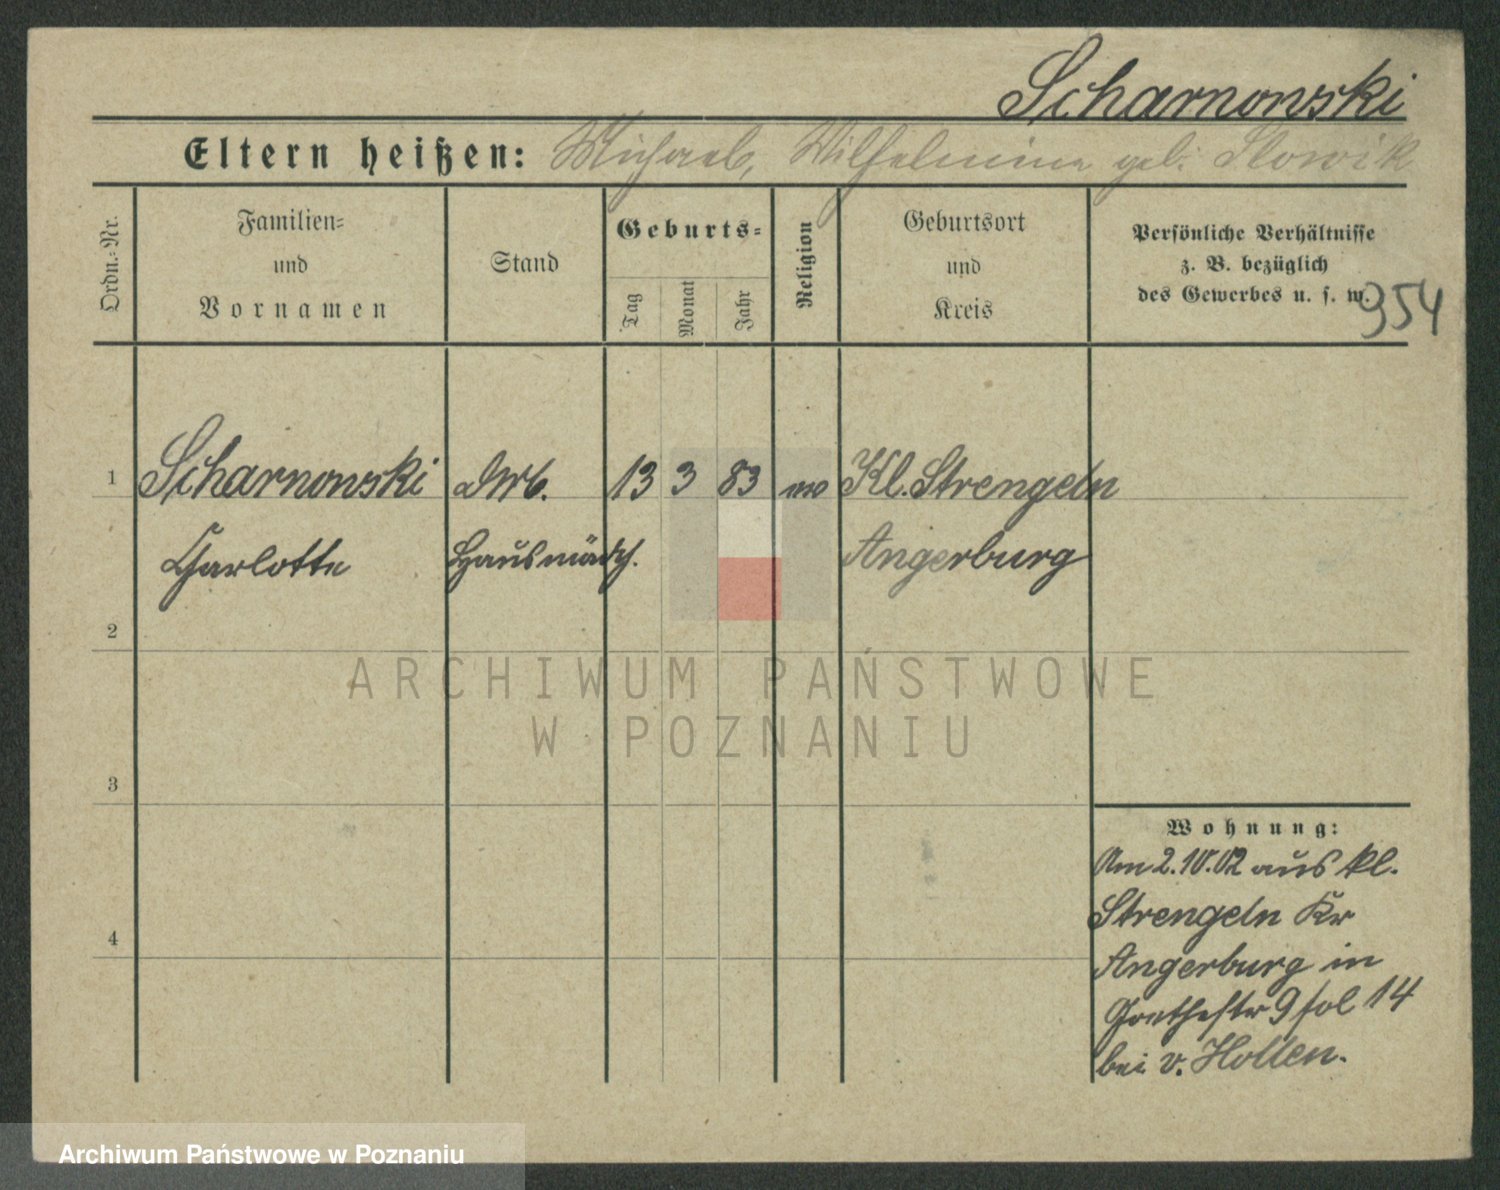 Scharnowski
Eltern heißen: Michael, Wilhelmine geb. Slowik
Ordn.-Nr.
Familien-
und
Vornamen
Stand
Geburts-
Tag
Monat
Jahr
Religion
Geburtsort
und
Kreis
Persönliche Verhältnisse
z. B. bezüglich
des Gewerbes u. s. w.
354
1 Scharnowski 13 3 83 ev Kl. Strengeln
Charlotte Hausmädch. Angerburg
2
3
4
Wohnung:
Am 2.10.02 aus Kl.
Strengeln Kr
Angerburg in
Goethestr 9 fol 14
bei v. Hollen.
ARCHIWUM PAŃSTWOWE
W POZNANIU
Archiwum Państwowe w Poznaniu